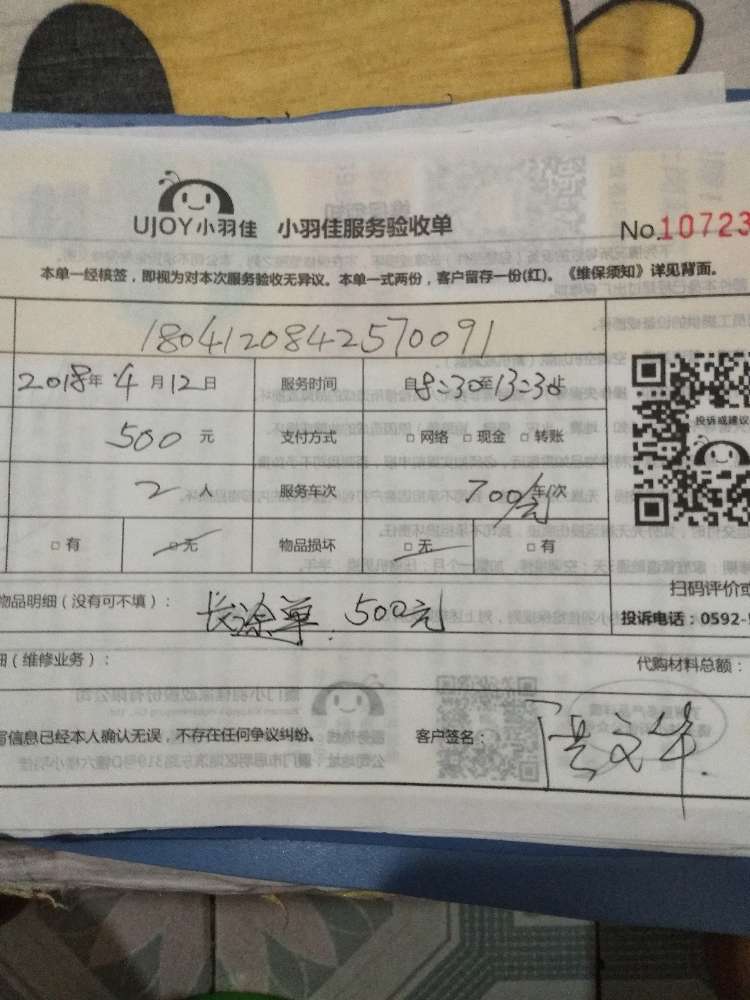 UJOY小羽佳 小羽佳服务验收单 No.10723
本单一经核签,即视为对本次服务验收无异议。本单一式两份,客户留存一份(红)。《维保须知》详见背面。
1804120842570091
2018年 4月12日 服务时间 自8:30至13:30止
500元 支付方式 □网络 □现金 □转账
2人 服务车次 700元 车/次
□有 □无 物品损坏 □无 □有
投诉或建议
扫码评价或
物品明细(没有可不填): 长涂单 500元 投诉电话:0592-
细(维修业务): 代购材料总额:
写信息已经本人确认无误,不存在任何争议纠纷。 客户签名: 文华